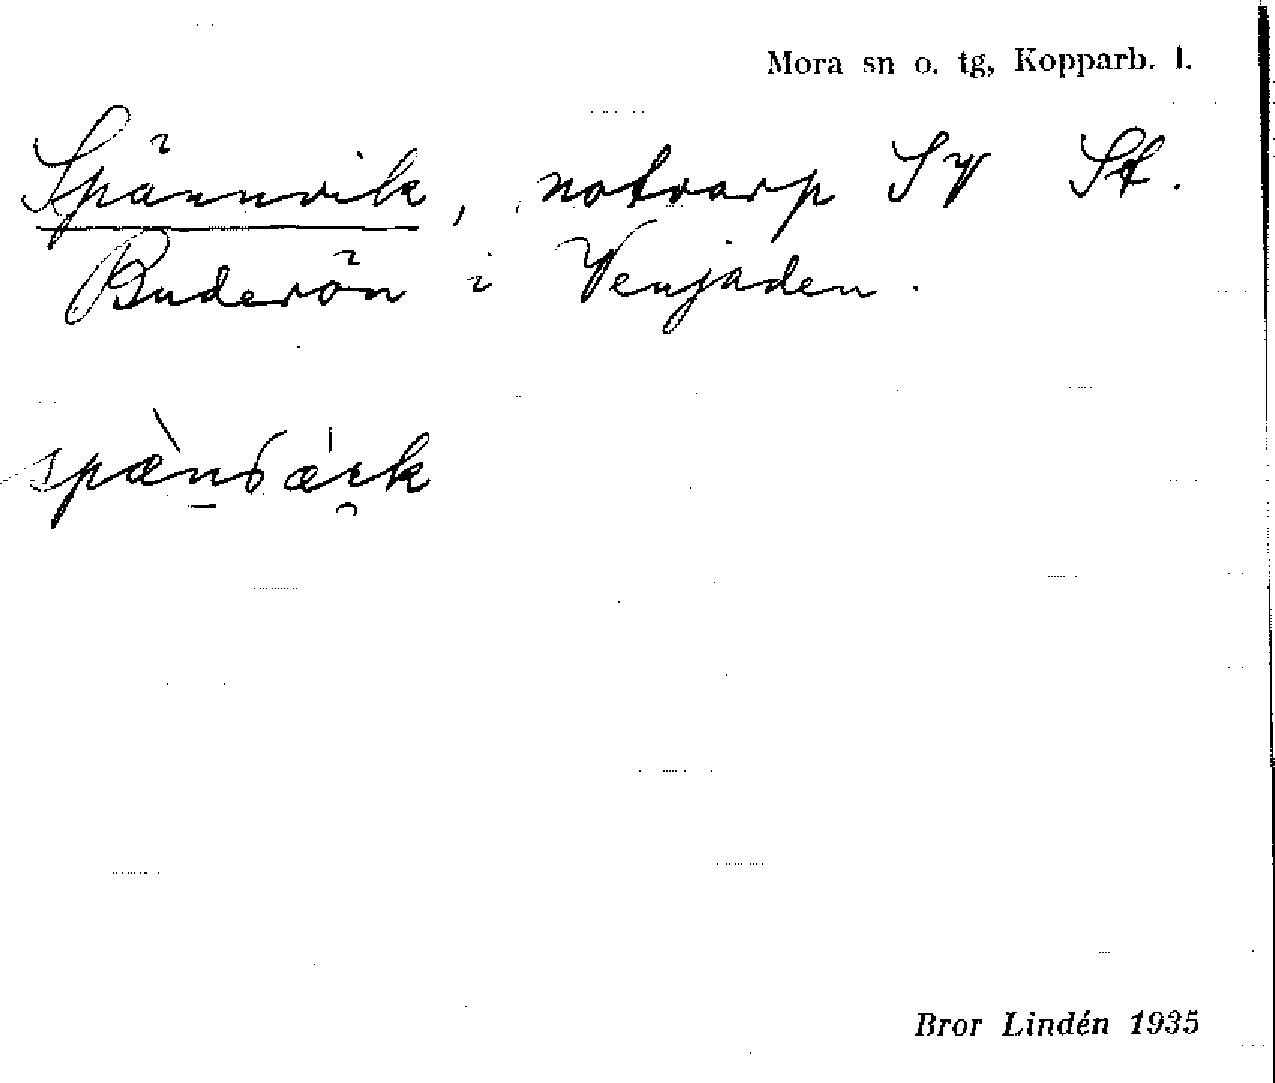 Mora sn o. tg, Kopparb. l.
Spännvik, notvarp SV St.
Buderön i Venjaden.
Bror Lindén 1935